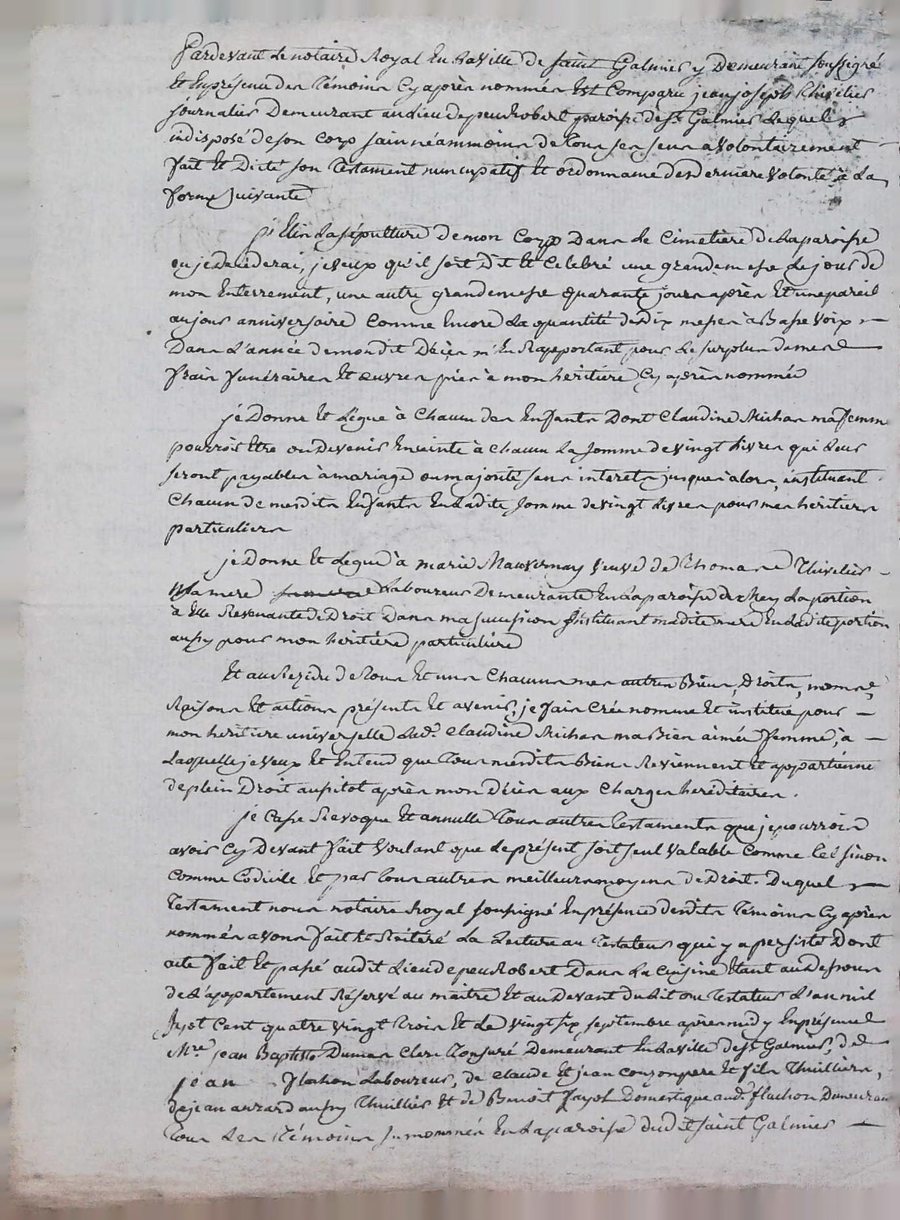 Pardevant le notaire Royal En la ville de saint Galmier y Demeurant soussigné
Et En présence des Témoins Cy après nommés Est Comparu jean joseph Thivelier
journalier Demeurant au lieu de peurobert paroisse de st Galmier Lequel
indisposé de son corp sain néammoins de Tous ses sens a volontairement
fait Et Dicté son Testament nuncupatif Et ordonnance de derniere volonté à La
forme suivante
j'Elis La sépulture de mon Corps Dans Le Cimetiere de La paroisse
ou je décéderai, je veux qu'il soit Dit Et Celebré une grande messe Le jour de
mon Enterrement, une autre grande messe quarante jours après Et une pareil
au jour anniversaire Comme Encore La quantité de Dix messes à Basse voix
Dans L'année de mon dit Décès m'En Rapportant pour Le surplus de mes
frais funéraires Et œuvres pies à mon heritiere Cy après nommée
je Donne Et Légue à Chacun des Enfants Dont Claudine Michas ma femme
pourroit Etre ou Devenir Enceinte à chacun La somme de vingt Livres qui Leur
seront payables à mariage ou majorité sans interets jusques à lors, instituant
Chacun de mes dits Enfants En La dite somme de vingt Livres pour mes héritiers
particuliers
je Donne Et Légue à marie Mauvernay veuve de Thomas Thivelier
Ma mere Laboureur Demeurante En La paroisse de La portion
à Elle Revenante de Droit Dans ma succession Instituant ma dite mere En La dite portion
aussy pour mon héritiere particuliere
Et au Rezidu de Tous Et uns Chacuns mes autres Biens, Droits, noms,
Raisons Et actions présents Et avenir, je fais Crée nomme Et institue pour
mon heritiere universelle La de Claudine Michas ma Bien aimée femme, à
Laquelle je veux Et Entend que Tous mes dits Biens Reviennent Et appartienne
de plein Droit aussitot après mon Décès aux Charges heréditaires.
je Casse Revoque Et annulle Tous autres Testaments que je pourrois
avoir Cy Devant fait voulant que le présent soit seul valable Comme tel sinon
Comme Codicile Et par Tous autres meilleurs moyens de Droit. Duquel
Testament nous notaire Royal soussigné En présence des dits Témoins Cy après
nommés avons fait Et Reiteré La Lecture au Testateur qui y a persisté Dont
acte fait Et passé au dit Lieu de peurobert Dans La Cuisine Etant au Dessous
de L'appartement Réservé au maitre Et au Devant du Lit du Testateur L'an mil
sept Cent quatre vingt trois Et Le vingt six septembre après midy En présence
Mre jean Baptiste Dumas Clerc Tonsuré Demeurant En La ville de st Galmier, de
jean flachon Laboureur, de Claude Et jean pere Et fils Thuilliers,
de jean aussy Thuillier Et de Benoit fayol Domestique au dt flachon Demeurant
Tous Les Témoins susnommés En La paroisse du dit saint Galmier